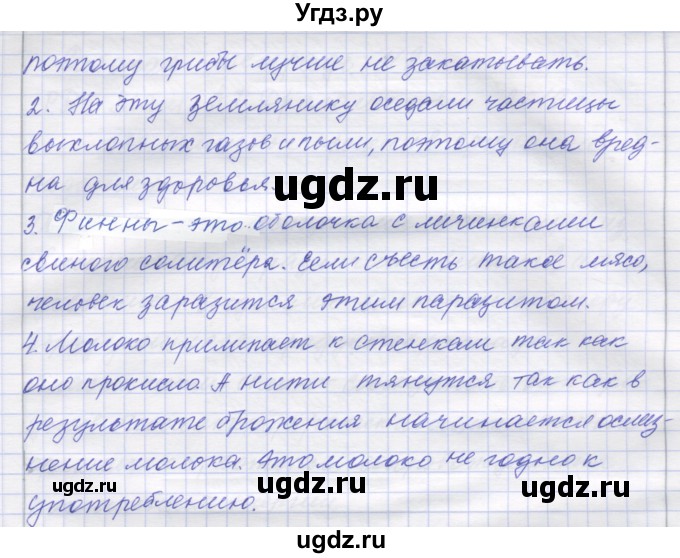 Угдз.ру
поэтому грибы лучше не закатывать.
2. На эту землянику оседали частицы
выхлопных газов и пыли, поэтому она вред-
на для здоровья.
ugdz.ru ugdz.ru
3. Финны – это оболочка с личинками
свиного солитёра. Если съесть такое мясо,
человек заразится этим паразитом.
4. Молоко прилипает к стенкам так как
оно прокисло. А нити тянутся так как в
результате брожения начинается ослиз-
нение молока. Это молоко не годно к
ugdz.ru ugdz.ru ugdz.ru
употреблению.
ugdz.ru